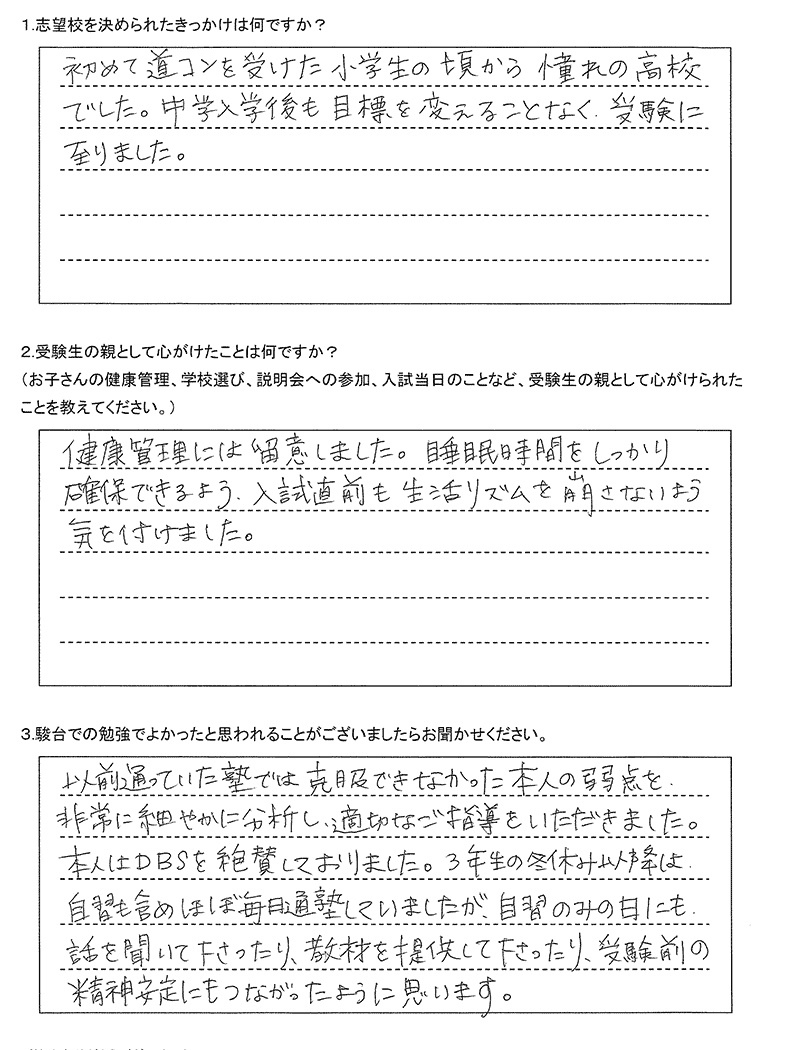 1.志望校を決められたきっかけは何ですか？
初めて道コンを受けた小学生の頃から憧れの高校
でした。中学入学後も目標を変えることなく、受験に
至りました。
2.受験生の親として心がけたことは何ですか？
（お子さんの健康管理、学校選び、説明会への参加、入試当日のことなど、受験生の親として心がけられた
ことを教えてください。）
健康管理には留意しました。睡眠時間をしっかり
確保できるよう、入試直前も生活リズムを崩さないよう
気を付けました。
3.駿台での勉強でよかったと思われることがございましたらお聞かせください。
以前通っていた塾では克服できなかった本人の弱点を、
非常に細やかに分析し、適切なご指導をいただきました。
本人はDBSを絶賛しておりました。3年生の冬休み以降は、
自習も含めほぼ毎日通塾していましたが、自習のみの日にも、
話を聞いて下さったり、教材を提供して下さったり、受験前の
精神安定にもつながったように思います。